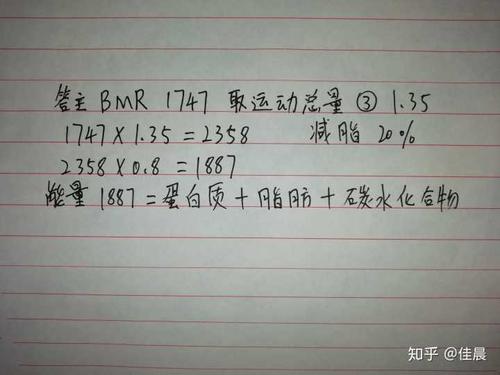 答主 BMR 1747 取运动总量 ③ 1.35
1747×1.35=2358 减脂 20%
2358×0.8=1887
能量 1887=蛋白质+脂肪+碳水化合物
知乎 @佳晨